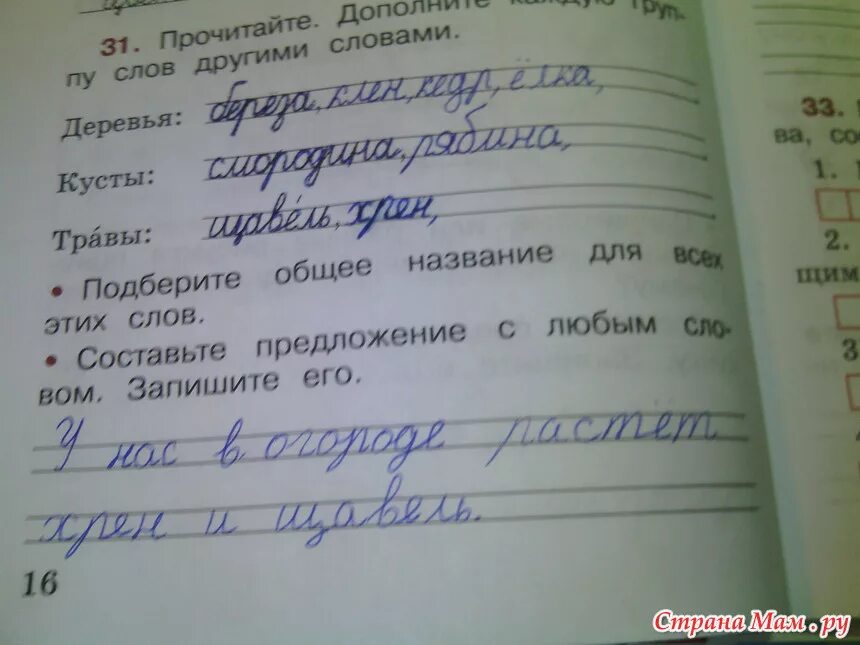 31. Прочитайте. Дополните каждую груп-
пу слов другими словами.
Деревья: береза, клен, кедр, ёлка,
Кусты: смородина, рябина,
Тра́вы: щаве́ль, хрен,
• Подберите общее название для всех
этих слов.
• Составьте предложение с любым сло-
вом. Запишите его.
У нас в огороде растёт
хрен и щавель.
16
33.
ва, со
1.
2.
щим
3
Страна Мам.ру